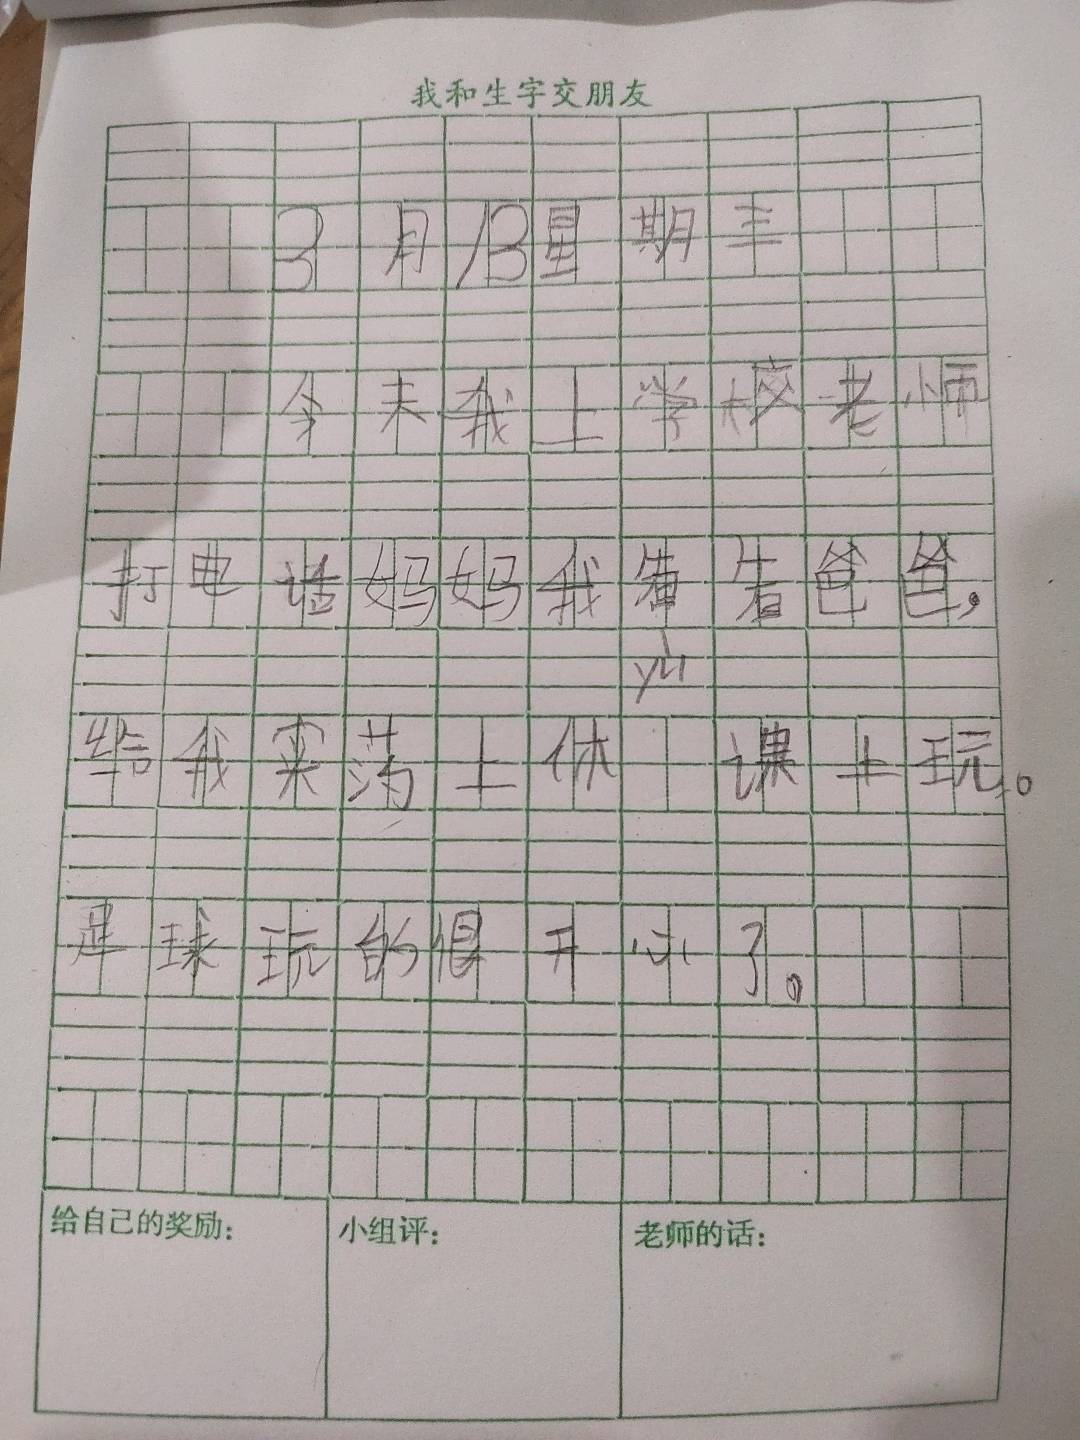 我和生字交朋友
3月13星期三
今天我上学校老师
打电话妈妈我爸爸,
yù
给我买药上体 课上玩。
足球玩的很开心了。
给自己的奖励: 小组评: 老师的话: